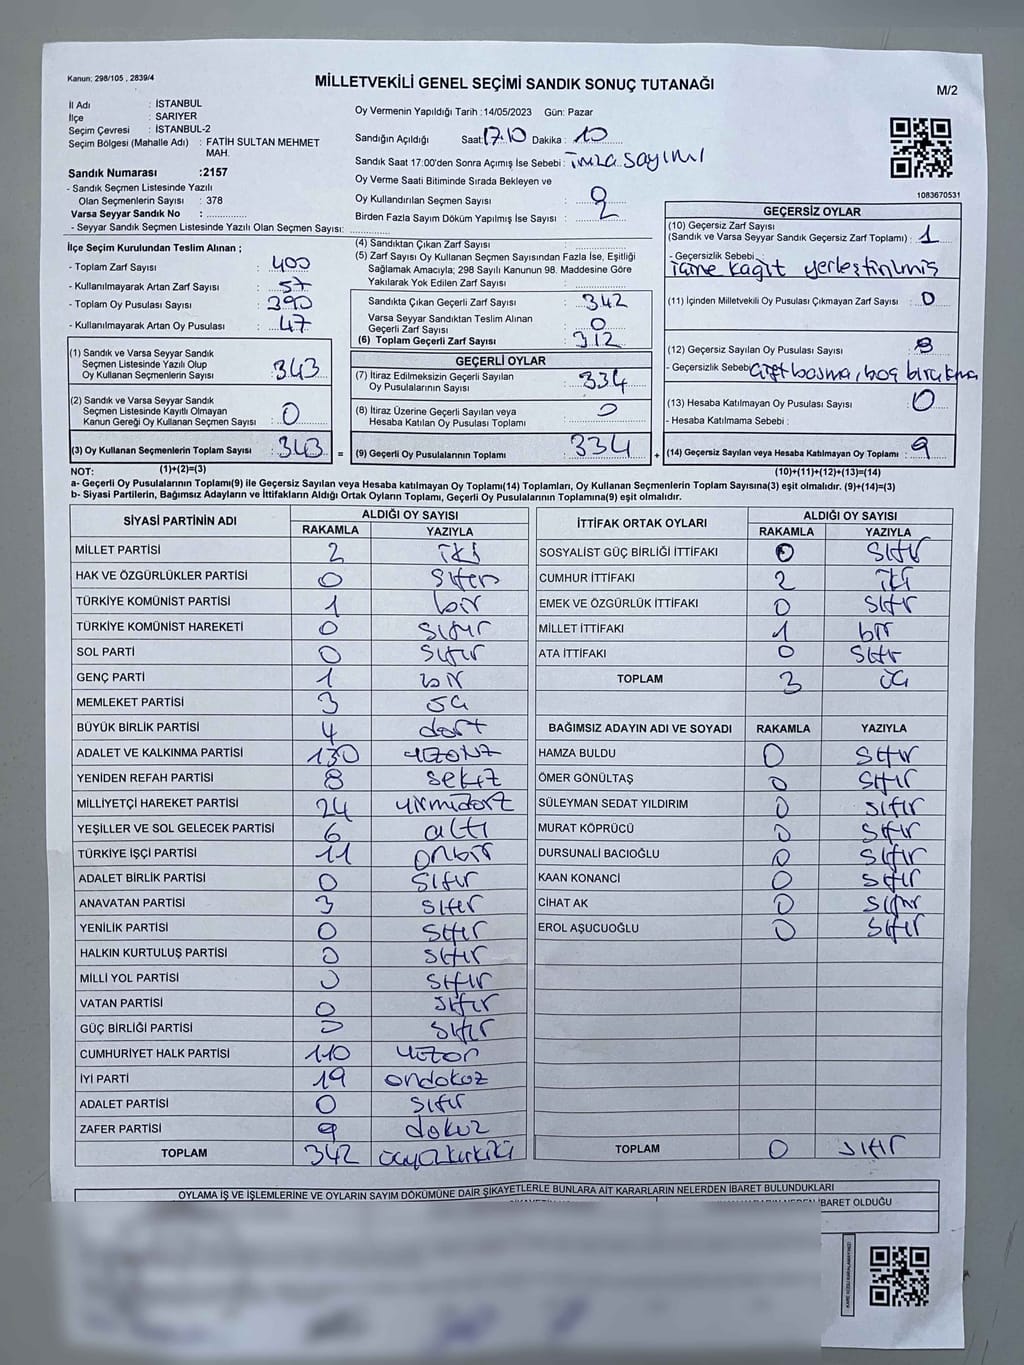 Kanun: 298/105 , 2839/4
MİLLETVEKİLİ GENEL SEÇİMİ SANDIK SONUÇ TUTANAĞI
M/2
İl Adı : İSTANBUL
İlçe : SARIYER
Seçim Çevresi : İSTANBUL-2
Seçim Bölgesi (Mahalle Adı) : FATİH SULTAN MEHMET
MAH.
Sandık Numarası :2157
- Sandık Seçmen Listesinde Yazılı
Olan Seçmenlerin Sayısı : 378
Varsa Seyyar Sandık No : ..............
- Seyyar Sandık Seçmen Listesinde Yazılı Olan Seçmen Sayısı: ..............
Oy Vermenin Yapıldığı Tarih :14/05/2023 Gün: Pazar
Sandığın Açıldığı Saat: 17.10 Dakika : 10
Sandık Saat 17:00'den Sonra Açımış İse Sebebi : imza sayımı
Oy Verme Saati Bitiminde Sırada Bekleyen ve
Oy Kullandırılan Seçmen Sayısı : 0
Birden Fazla Sayım Döküm Yapılmış İse Sayısı : 2
1083670531
İlçe Seçim Kurulundan Teslim Alınan ;
- Toplam Zarf Sayısı : 400
- Kullanılmayarak Artan Zarf Sayısı : 57
- Toplam Oy Pusulası Sayısı : 390
- Kullanılmayarak Artan Oy Pusulası : 47
(1) Sandık ve Varsa Seyyar Sandık
Seçmen Listesinde Yazılı Olup
Oy Kullanan Seçmenlerin Sayısı : 343
(2) Sandık ve Varsa Seyyar Sandık
Seçmen Listesinde Kayıtlı Olmayan
Kanun Gereği Oy Kullanan Seçmen Sayısı : 0
(3) Oy Kullanan Seçmenlerin Toplam Sayısı : 343 =
(1)+(2)=(3)
(4) Sandıktan Çıkan Zarf Sayısı :
(5) Zarf Sayısı Oy Kullanan Seçmen Sayısından Fazla İse, Eşitliği
Sağlamak Amacıyla; 298 Sayılı Kanunun 98. Maddesine Göre
Yakılarak Yok Edilen Zarf Sayısı :
Sandıkta Çıkan Geçerli Zarf Sayısı : 342
Varsa Seyyar Sandıktan Teslim Alınan
Geçerli Zarf Sayısı : 0
(6) Toplam Geçerli Zarf Sayısı : 312
GEÇERLİ OYLAR
(7) İtiraz Edilmeksizin Geçerli Sayılan
Oy Pusulalarının Sayısı : 334
(8) İtiraz Üzerine Geçerli Sayılan veya
Hesaba Katılan Oy Pusulası Toplamı : 0
(9) Geçerli Oy Pusulalarının Toplamı : 334 +
GEÇERSİZ OYLAR
(10) Geçersiz Zarf Sayısı
(Sandık ve Varsa Seyyar Sandık Geçersiz Zarf Toplamı) : 1
- Geçersizlik Sebebi :
içine kağıt yerleştirilmiş
(11) İçinden Milletvekili Oy Pusulası Çıkmayan Zarf Sayısı : 0
(12) Geçersiz Sayılan Oy Pusulası Sayısı : 8
- Geçersizlik Sebebi : çift basma, boş bırakma
(13) Hesaba Katılmayan Oy Pusulası Sayısı : 0
- Hesaba Katılmama Sebebi :
(14) Geçersiz Sayılan veya Hesaba Katılmayan Oy Toplamı : 9
(10)+(11)+(12)+(13)=(14)
NOT:
a- Geçerli Oy Pusulalarının Toplamı(9) ile Geçersiz Sayılan veya Hesaba katılmayan Oy Toplamı(14) Toplamları, Oy Kullanan Seçmenlerin Toplam Sayısına(3) eşit olmalıdır. (9)+(14)=(3)
b- Siyasi Partilerin, Bağımsız Adayların ve İttifakların Aldığı Ortak Oyların Toplamı, Geçerli Oy Pusulalarının Toplamına(9) eşit olmalıdır.
SİYASİ PARTİNİN ADI ALDIĞI OY SAYISI
RAKAMLA YAZIYLA
MİLLET PARTİSİ 2 iki
HAK VE ÖZGÜRLÜKLER PARTİSİ 0 sıfır
TÜRKİYE KOMÜNİST PARTİSİ 1 bir
TÜRKİYE KOMÜNİST HAREKETİ 0 sıfır
SOL PARTİ 0 sıfır
GENÇ PARTİ 1 bir
MEMLEKET PARTİSİ 3 üç
BÜYÜK BİRLİK PARTİSİ 4 dört
ADALET VE KALKINMA PARTİSİ 130 yüzotuz
YENİDEN REFAH PARTİSİ 8 sekiz
MİLLİYETÇİ HAREKET PARTİSİ 24 yirmidört
YEŞİLLER VE SOL GELECEK PARTİSİ 6 altı
TÜRKİYE İŞÇİ PARTİSİ 11 onbir
ADALET BİRLİK PARTİSİ 0 sıfır
ANAVATAN PARTİSİ 3 sıfır
YENİLİK PARTİSİ 0 sıfır
HALKIN KURTULUŞ PARTİSİ 0 sıfır
MİLLİ YOL PARTİSİ 0 sıfır
VATAN PARTİSİ 0 sıfır
GÜÇ BİRLİĞİ PARTİSİ 0 sıfır
CUMHURİYET HALK PARTİSİ 110 yüzon
İYİ PARTİ 19 ondokuz
ADALET PARTİSİ 0 sıfır
ZAFER PARTİSİ 9 dokuz
TOPLAM 342 üçyüzkırkiki
İTTİFAK ORTAK OYLARI ALDIĞI OY SAYISI
RAKAMLA YAZIYLA
SOSYALİST GÜÇ BİRLİĞİ İTTİFAKI 0 sıfır
CUMHUR İTTİFAKI 2 iki
EMEK VE ÖZGÜRLÜK İTTİFAKI 0 sıfır
MİLLET İTTİFAKI 1 bir
ATA İTTİFAKI 0 sıfır
TOPLAM 3 üç
BAĞIMSIZ ADAYIN ADI VE SOYADI RAKAMLA YAZIYLA
HAMZA BULDU 0 sıfır
ÖMER GÖNÜLTAŞ 0 sıfır
SÜLEYMAN SEDAT YILDIRIM 0 sıfır
MURAT KÖPRÜCÜ 0 sıfır
DURSUNALİ BACIOĞLU 0 sıfır
KAAN KONANCİ 0 sıfır
CİHAT AK 0 sıfır
EROL AŞUCUOĞLU 0 sıfır
TOPLAM 0 sıfır
OYLAMA İŞ VE İŞLEMLERİNE VE OYLARIN SAYIM DÖKÜMÜNE DAİR ŞİKAYETLERLE BUNLARA AİT KARARLARIN NELERDEN İBARET BULUNDUKLARI
İBARET OLDUĞU